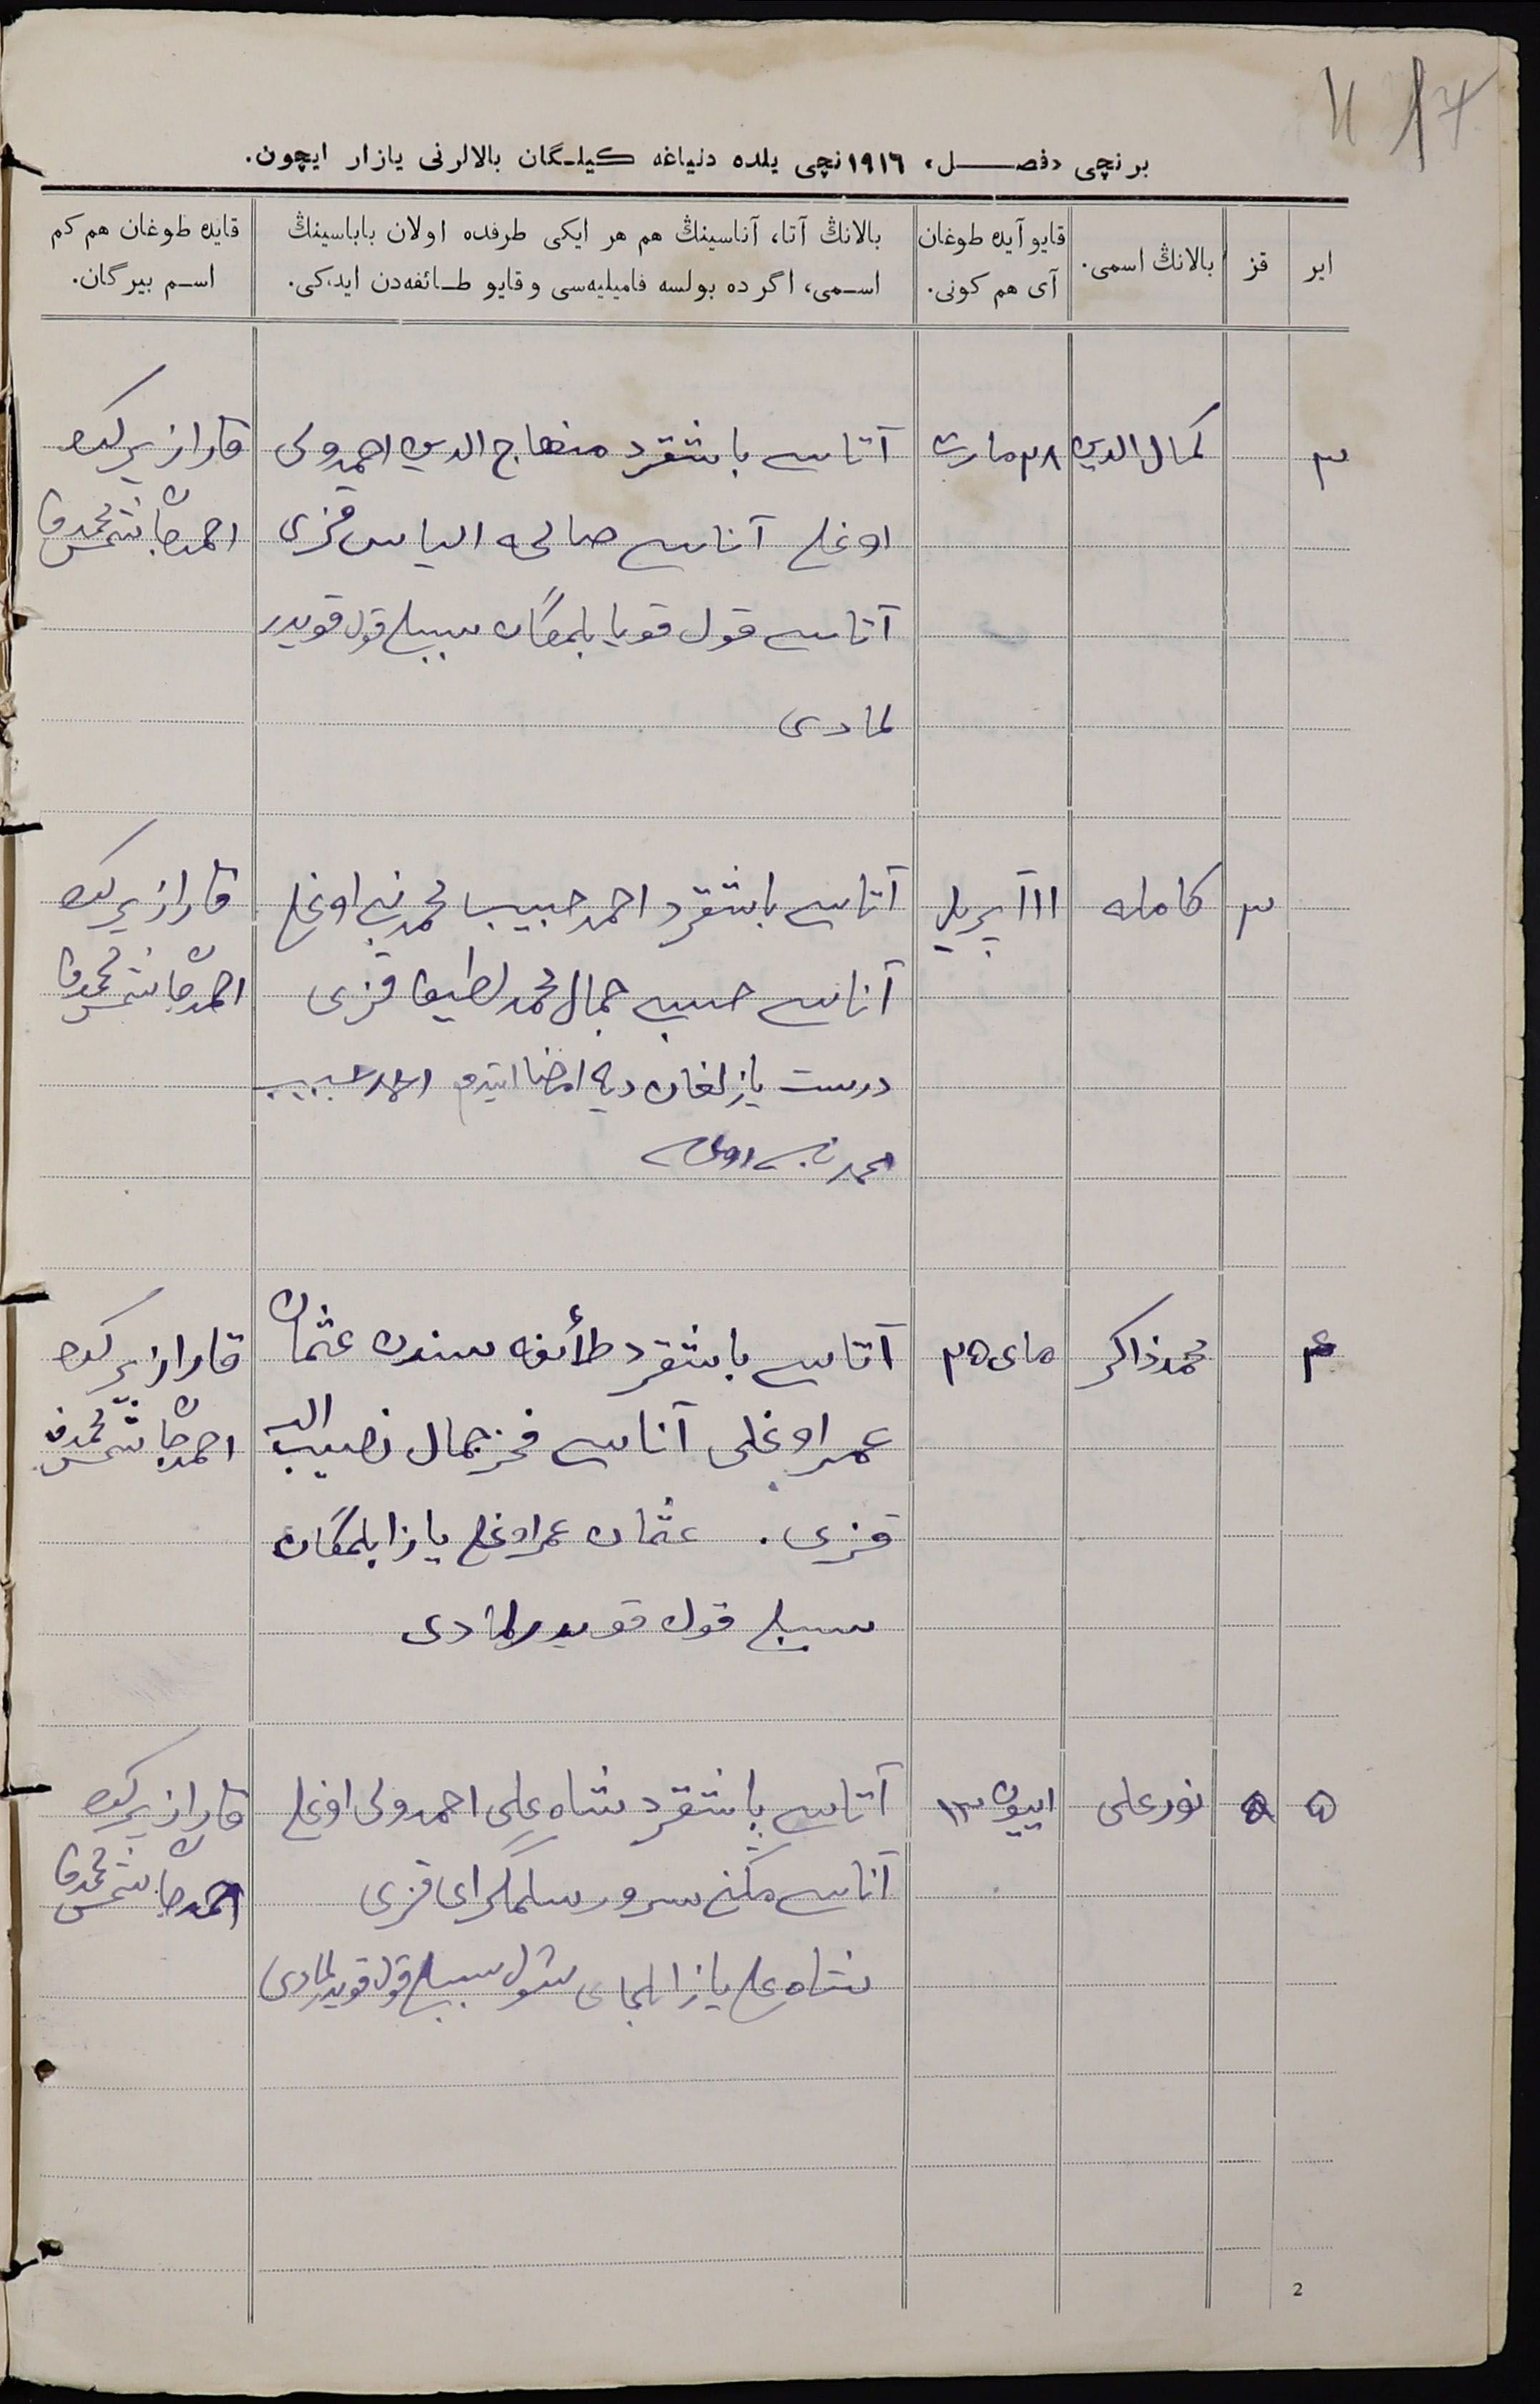 برنچی «فصل» ١٩١٦نچی يلده دنياغه كيلگان بالالرنی يازار ايچون.
اير
قز
بالانڭ اسمی.
قايو آيده طوغان
آی هم كونی.
بالانڭ آتا، آناسينڭ هم هر ايكی طرفده اولان باباسينڭ
اسمی، اگر ده بولسه فاميليه‌سی و قايو طائفه‌دن ايدكی.
قايده طوغان هم كم
اسم بيرگان.
٣
كمال الدين
٢٨ مارت
آتاسی باشقرد منهاج الدين احمدولی
اوغلی آناسی صالحه الياس قزی
آتاسی قول قويا بلمگان سببلی قول قويدر
لمادی
احمدجان شمس محمدف
٣
كامله
١١ آپريل
آتاسی باشقرد احمد حبيب محمدنبی اوغلی
آناسی حبيب جمال محمد لطيف قزی
درست يازلغان ديه امضا ايتدم احمد حبيب
محمد نبی اوغلی
احمدجان شمس محمدف
٤
محمدذاكر
مای ٢٥
آتاسی باشقرد طائفه سندن عثمان
عمر اوغلی آناسی فخرجمال نصيب الله
قزی. عثمان عمر اوغلی يازا بلمگان
سببلی قول قويدرلمادی
احمدجان شمس محمدف
٥
نورعلی
اييون ١٣
آتاسی باشقرد شاه علی احمدولی اوغلی
آناسی سرور سلمگرای قزی
شاه علی يازا بلمای شول سببلی قول قويدرلمادی
احمدجان شمس محمدف
2